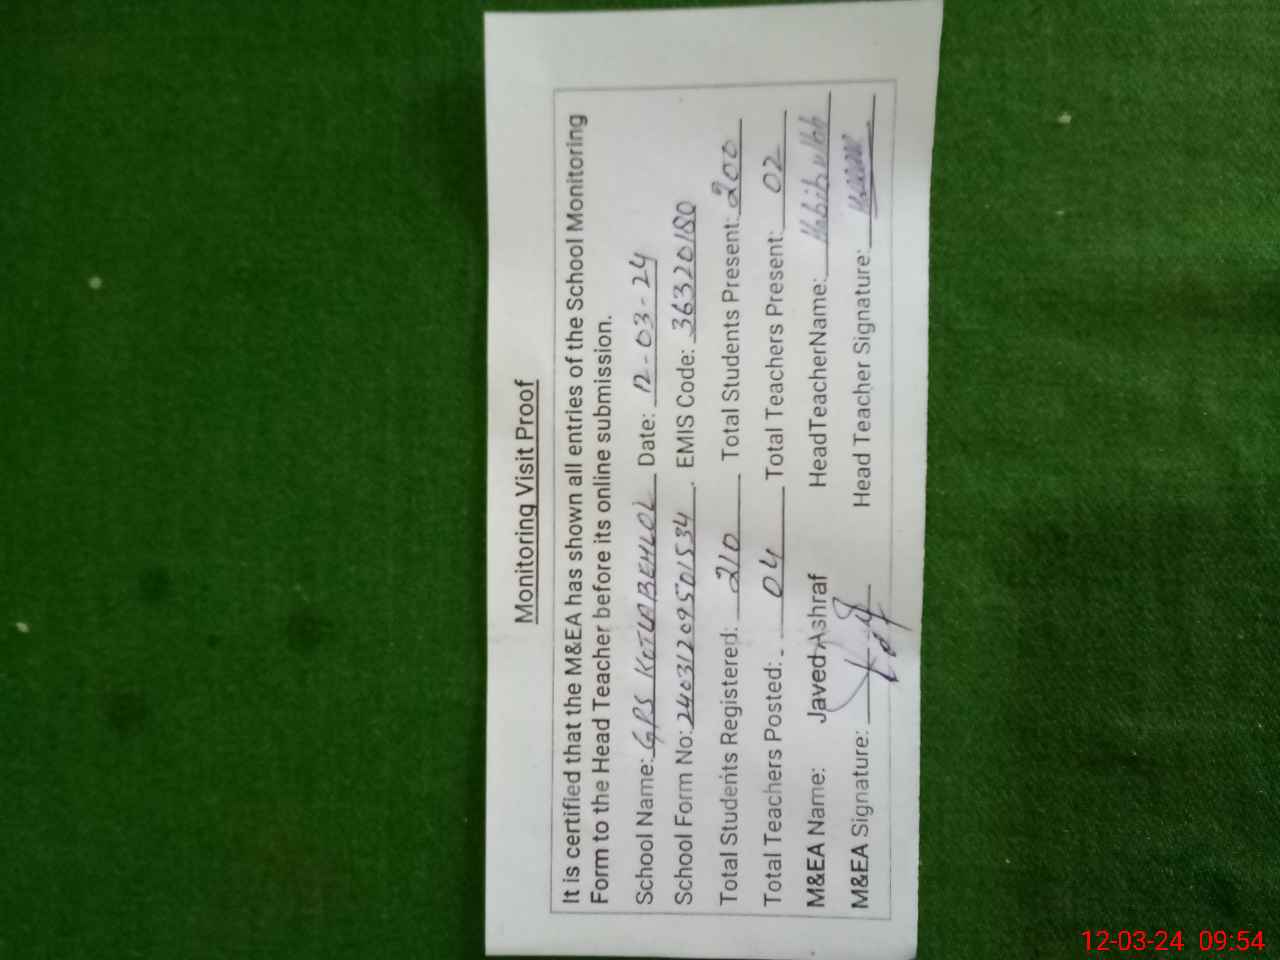 Monitoring Visit Proof
It is certified that the M&EA has shown all entries of the School Monitoring
Form to the Head Teacher before its online submission.
School Name: GPS KOTLA BEHLOL Date: 12-03-24
School Form No: 24031209501534. EMIS Code: 36320180
Total Students Registered: 210 Total Students Present: 200
Total Teachers Posted: 04 Total Teachers Present: 02
M&EA Name: Javed Ashraf HeadTeacherName:
M&EA Signature: Head Teacher Signature:
12-03-24 09:54